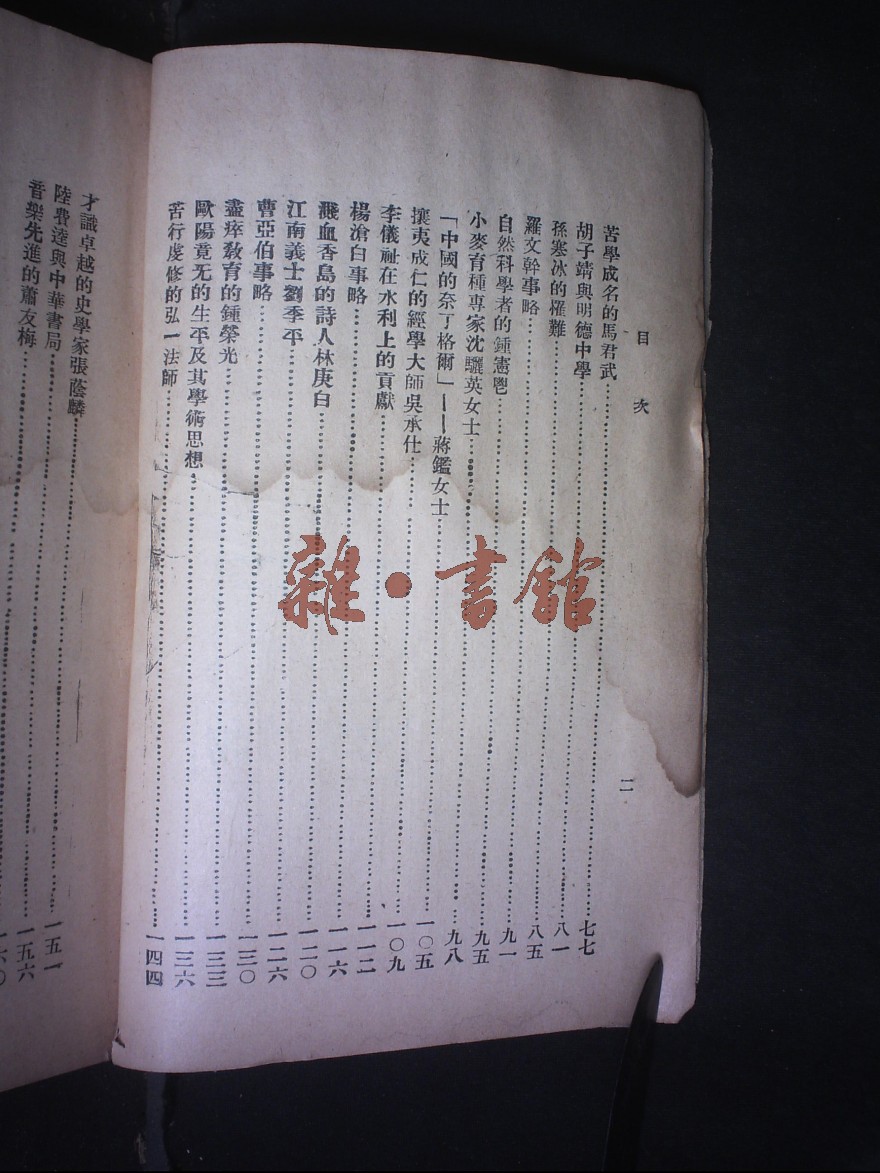 目次
二
苦學成名的馬君武……七七
胡子靖與明德中學……八一
孫寒冰的罹難……八五
羅文幹事略……九一
自然科學者的鍾憲鬯……九五
小麥育種專家沈驪英女士……九八
「中國的奈丁格爾」——蔣鑑女士……一〇五
攘夷成仁的經學大師吳承仕……一〇九
李儀祉在水利上的貢獻……一一二
楊滄白事略……一一六
濺血香島的詩人林庚白……一二〇
江南義士劉季平……一二六
曹亞伯事略……一三〇
盡瘁教育的鍾榮光……一三三
歐陽竟无的生平及其學術思想……一三六
苦行虔修的弘一法師……一四四
才識卓越的史學家張蔭麟……一五一
陸費逵與中華書局……一五六
音樂先進的蕭友梅……一六〇
雜·書館